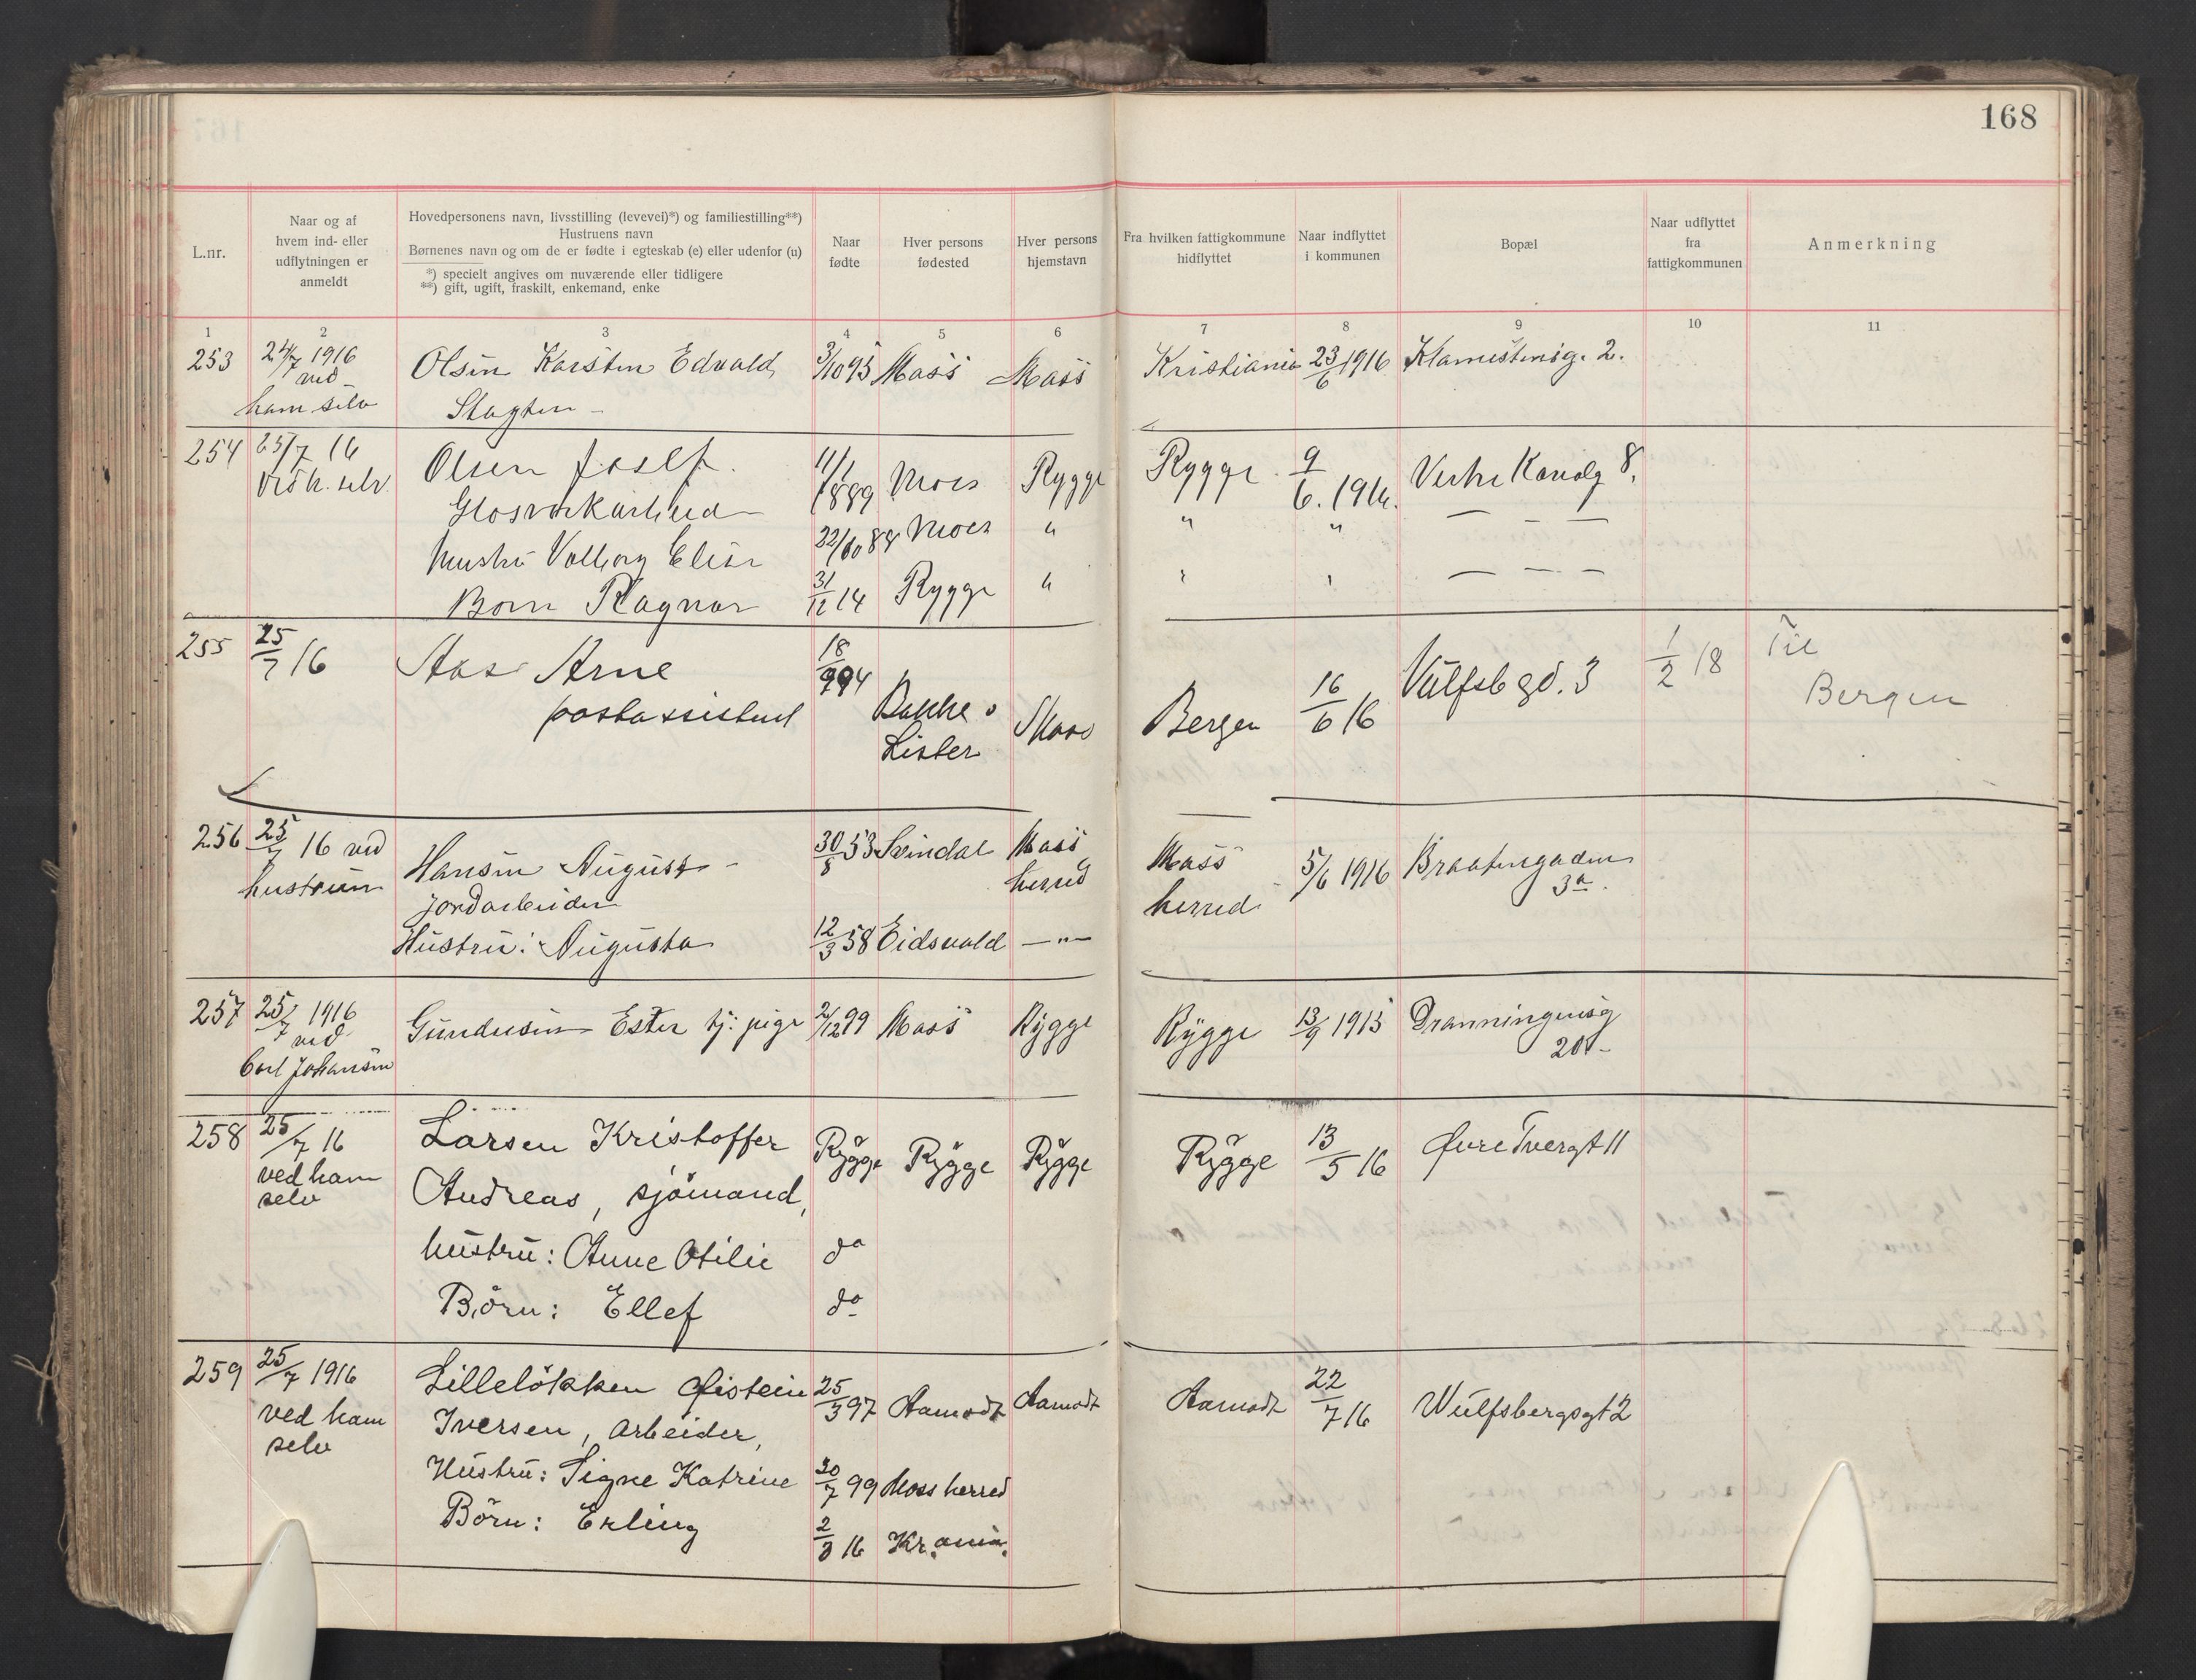 168
L.nr.
Naar og af
hvem ind- eller
udflytningen er
anmeldt
Hovedpersonens navn, livsstilling (levevei)*) og familiestilling**)
Hustruens navn
Børnenes navn og om de er fødte i egteskab (e) eller udenfor (u)
*) specielt angives om nuværende eller tidligere
**) gift, ugift, fraskilt, enkemand, enke
Naar
fødte
Hver persons
fødested
Hver persons
hjemstavn
Fra hvilken fattigkommune
hidflyttet
Naar indflyttet
i kommunen
Bopæl
Naar udflyttet
fra
fattigkommunen
Anmerkning
1 2 3 4 5 6 7 8 9 10 11
253 24/7 1916 Olsen Karsten Edvald 3/10 95 Moss Moss Kristiania 23/6 1916 2.
ved
ham selv
254 25/7 16 Olsen Josef. 11/1 1889 Moss Rygge Rygge 9/6. 1916. Vestre Kanalg 8.
ved h. selv
Hustru Valborg Elise 22/10 88 Moss " " " — — —
Born Ragnar 31/12 14 Rygge " — — —
255 25/7 16 Aas Arne 18/9 94 Bakke Bergen 16/6 16 Vülfsb gd. 3 1/2 18 Til
postassistent Lister Moss Bergen
256 25/7 16 ved Hansen August 30/8 53 Svindal Moss Moss 5/6 1916 Braatengaden
hustruen herred herred 3a.
jordarbeider
Hustru: Augusta 12/3 58 Eidsvold —"—
257 25/7 1916 Gundersen Ester tj: pige 2/12 99 Moss Rygge Rygge 13/9 1915 Dronningensg
ved 20
Carl Johansen
258 25/7 16 Larsen Kristoffer Rygge Rygge Rygge Rygge 13/5 16 Øvre Tvergt 11
ved ham Andreas, sjömand,
selv
hustru: Anne Otilie do
Börn: Ellef do
259 25/7 1916 Lillelökken Øistein 25/3 97 Aamodt Aamodt Aamodt 22/7 16 Wülfsbergsgt 2
ved ham Iversen, Arbeider,
selv
Hustru: Signe Katrine 30/7 99 Moss herred
Börn: Erling 2/3 16 Kr.ania.